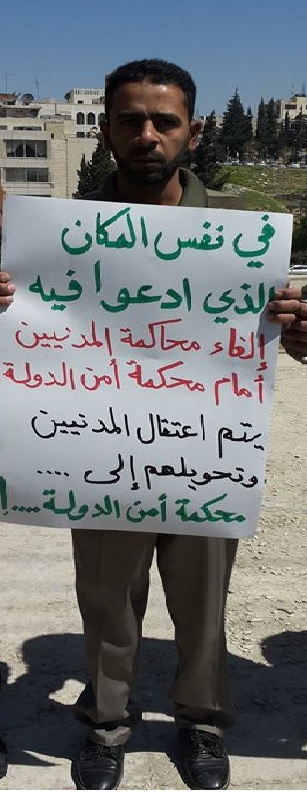 في نفس المكان
الذي ادعوا فيه
إلغاء محاكمة المدنيين
أمام محكمة أمن الدولة
يتم اعتقال المدنيين
وتحويلهم إلى ....
محكمة أمن الدولة....!